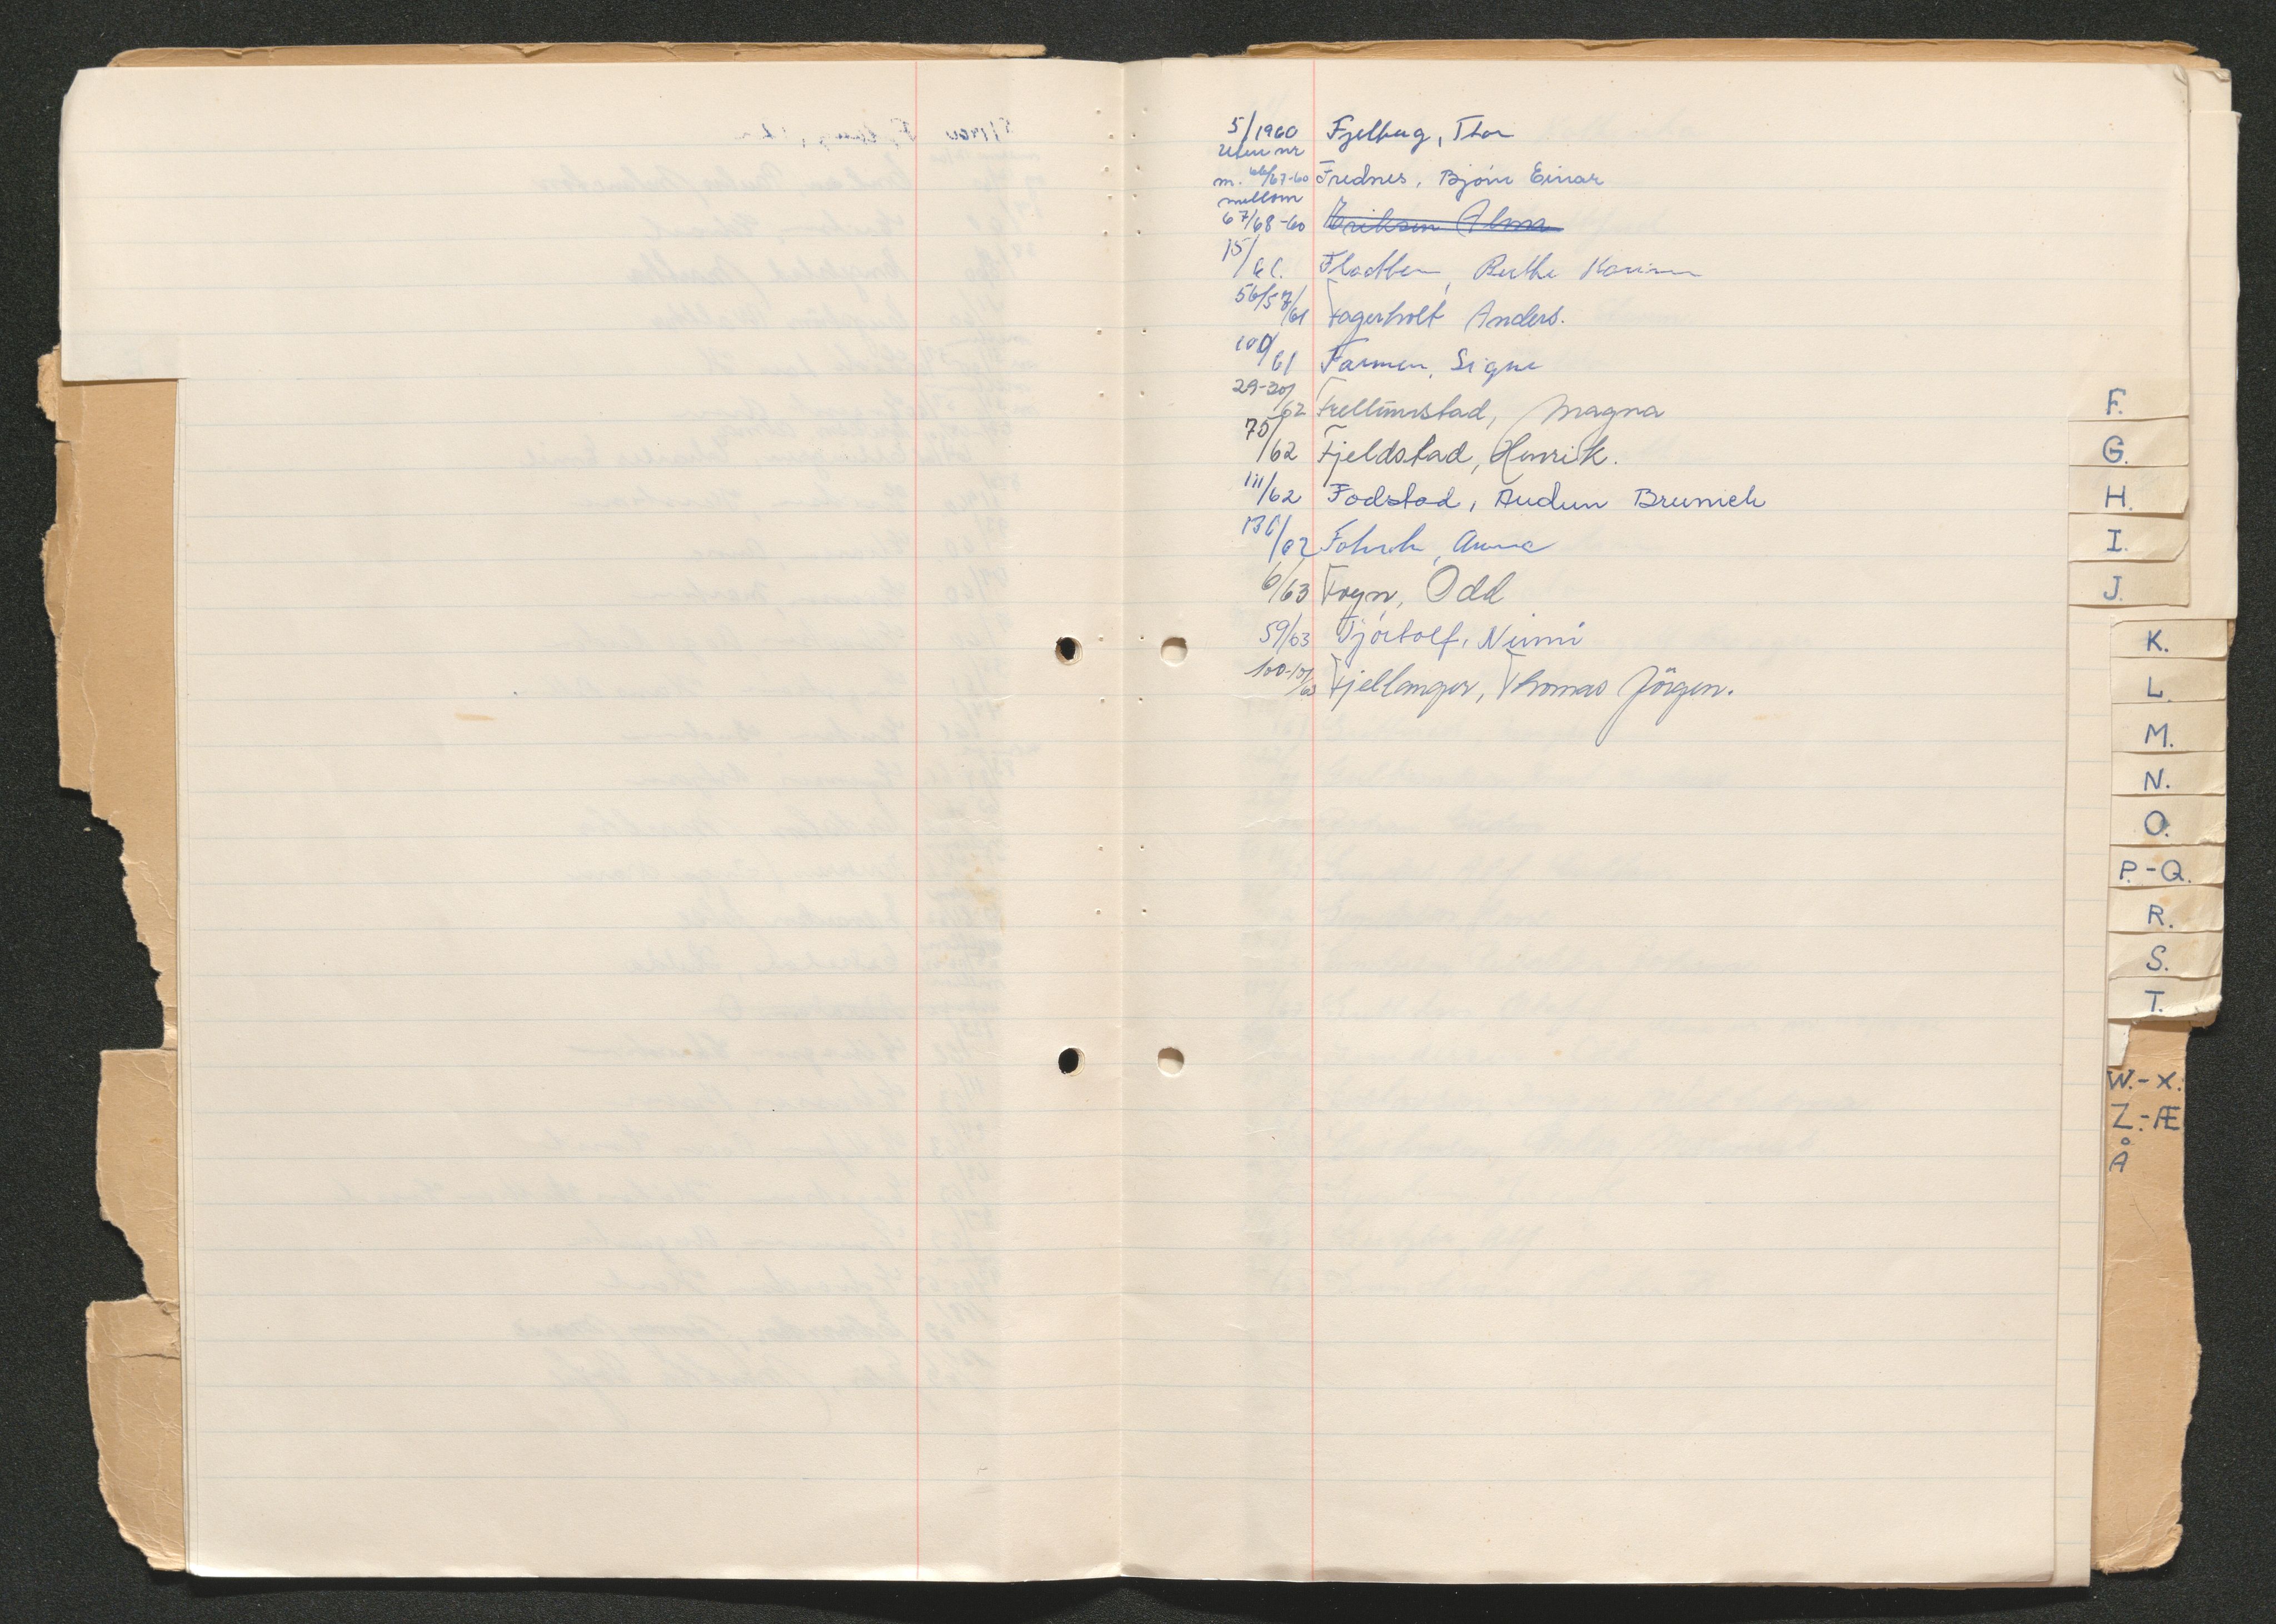 5/1960 Fjelberg, Thor
uten nr
m. 66/67-60 Frednes, Bjørn Einar
mellom
67/68-60 Eriksen Alma
15/61. Fladben, Berthe Karine
56/57/61 Fagerholt Anders.
100/61 Farmen, Signe
29-30/62 Magna
75/62 Fjeldstad, Henrik.
111/62 Fodstad, Audun Brunich
136/62 Anna
6/63 Foyn, Odd
59/63 Fjørtoft,
100-101/63 Fjellanger, Thomas Jörgen.
F.
G.
H.
I.
J.
K.
L.
M.
N.
O.
P.-Q.
R.
S.
T.
W.-X.
Z.-Æ
Å